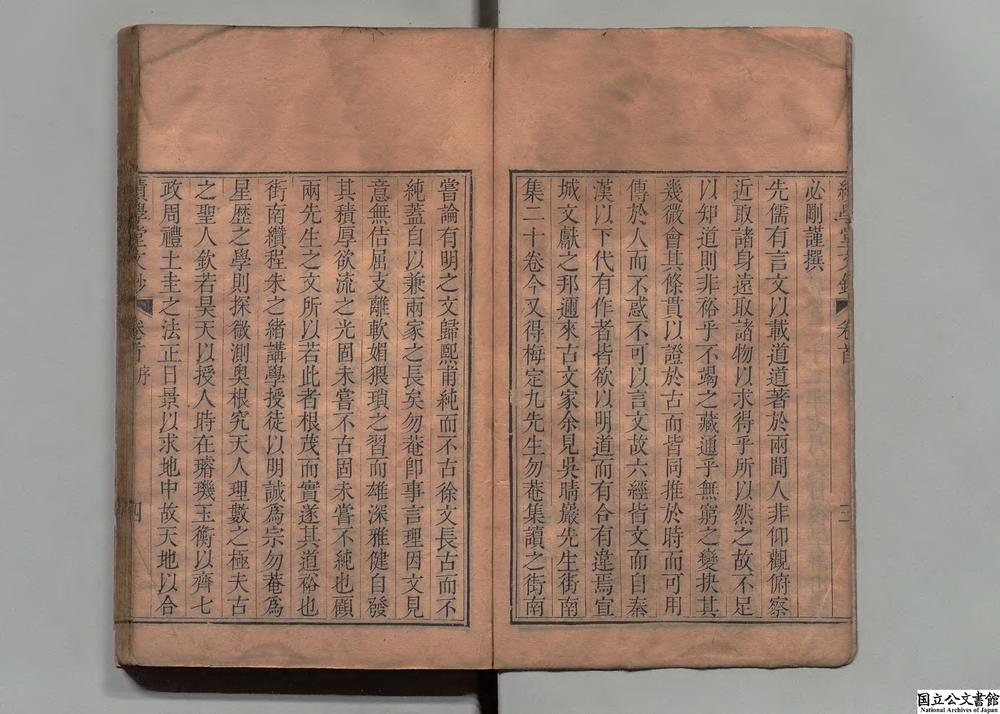 必剛謹撰
先儒有言文以載道道著於兩間人非仰觀俯察
近取諸身遠取諸物以求得乎所以然之故不足
以知道則非裕乎不竭之藏通乎無窮之變抉其
幾微會其條貫以證於古而皆同推於時而可用
傳於人而不惑不可以言文故六經皆文而自秦
漢以下代有作者皆欲以明道而有合有違焉宣
城文獻之邦邇來古文家余見吳晴巖先生街南
集二十卷今又得梅定九先生勿菴集讀之街南
嘗論有明之文歸熙甫純而不古徐文長古而不
純蓋自以兼兩家之長矣勿菴卽事言理因文見
意無佶屈支離軟媚猥瑣之習而雄深雅健自發
其積厚欲流之光固未嘗不古固未嘗不純也顧
兩先生之文所以若此者根茂而實遂其道裕也
街南纘程朱之緒講學授徒以明誠爲宗勿菴爲
星歷之學則探微測奧根究天人理數之極夫古
之聖人欽若昊天以授人時在璿璣玉衡以齊七
政周禮土圭之法正日景以求地中故天地以合
績學堂文鈔 卷首 序 四
国立公文書館
National Archives of Japan